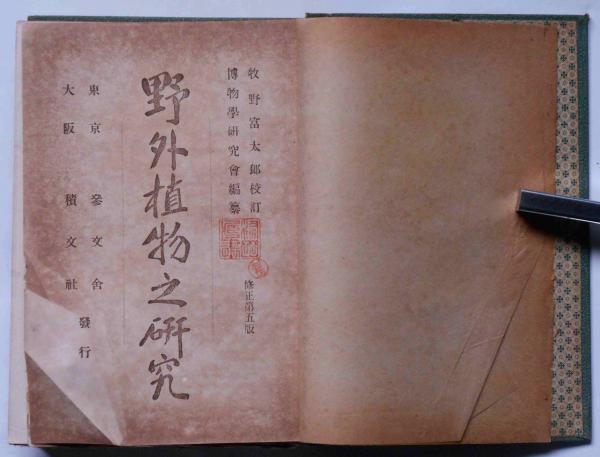 牧野富太郎校訂
博物學研究會編纂
修正第五版
野外植物之研究
東京 參文舍
大阪 積文社
發行